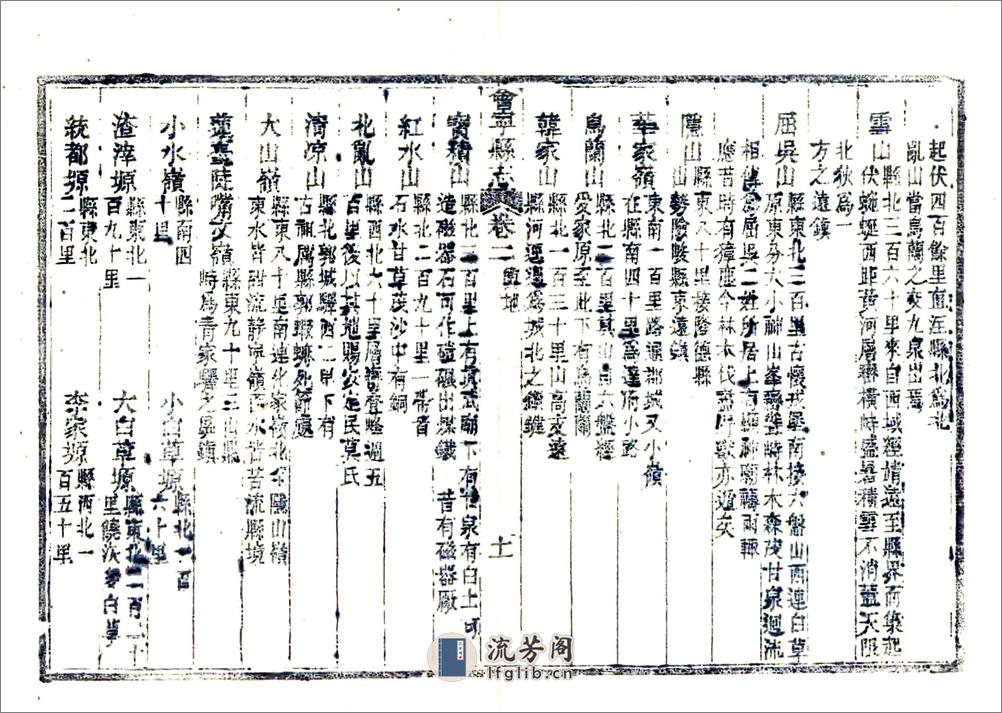 起伏四百餘里直汪縣北為北
亂山當烏蘭之交九泉出焉
雪山
縣北三百六十里來自西域經靖遠至縣界而集起
伏蜿蜒西距黃河層巒橫峙盛暑積雪不消蓋天限
北狄為一
方之遠鎮
屈吳山
縣東北二百里古懷戎堡南接六盤山西連白草
原東分大小神山峯巒聳峙林木森茂甘泉迴流
相傳屈吳二姓所居上有神廟禱雨輒
應昔時有獐鹿今林木伐盡野獸亦遁矣
隱山
縣東八十里接隆德縣
勢險峻縣東遠鎮
華家嶺
東南一百里路通郡城又小嶺
在縣南四十里為達府小路
烏蘭山
縣北二百里其山自六盤經
愛家原至此下有烏蘭關
韓家山
縣北一百三十里山高支遠
縣河迴遶為城北之鎖鑰
會寧縣志
卷二
輿地
十一
寶積山
縣北二百里上有真武廟下有甘泉有白土可
造磁器石可作磑碾出煤鐵 昔有磁器廠
紅水山
縣北二百九十里一帶省
石水甘草茂沙中有銅
北亂山
縣西北六十里層巒疊嶂週五
百里後以其地賜安定民莫氏
清凉山
縣北郭城驛西二里下有
古祖厲縣郭蝦蟆死節處
大山嶺
縣東八十里南連化家嶺北全隱山嶺
東水皆甜流靜寧嶺西水皆苦流縣境
縣東九十里三山鼎
時為青家驛之屏鎮
小水嶺
縣南四
十里
小白草塬
縣北一百
六十里
渣滓塬
縣東北一
百九十里
大白草塬
縣東北二百二十
里饒沃多白草
統都塬
縣東北
二百里
李家塬
縣西北一
百五十里
流芳阁
lfglib.cn